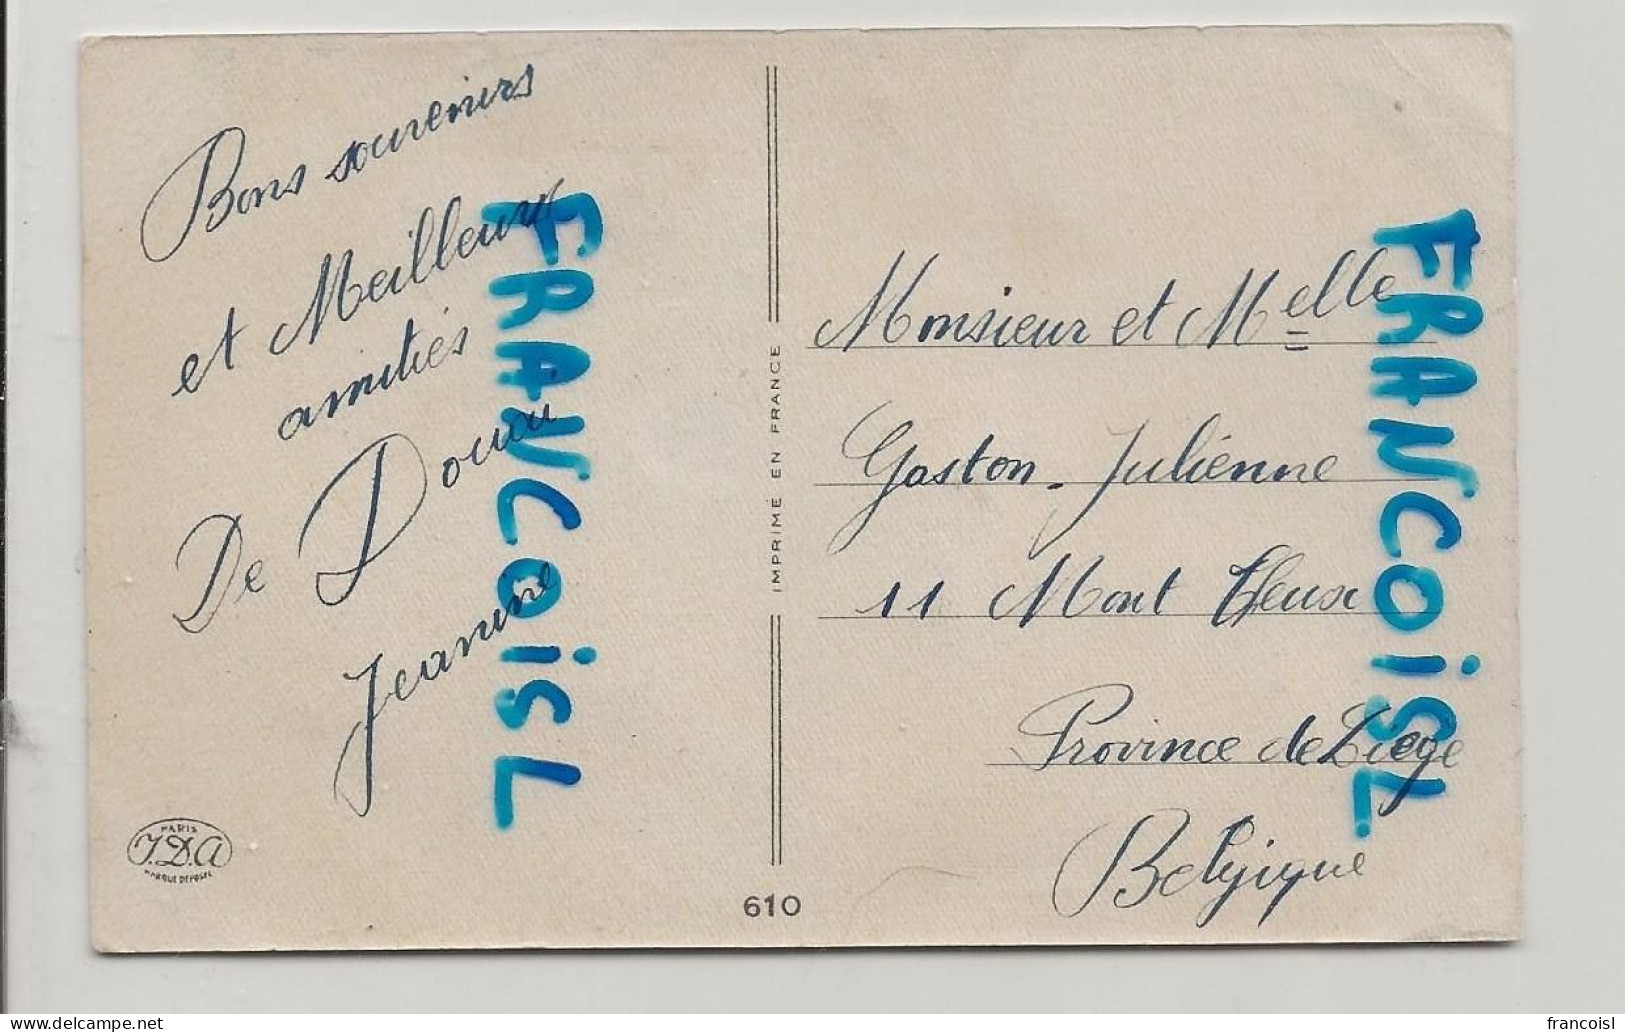 Bons souvenirs
et Meilleures
amitiés
De Douai
Jeannine
PARIS
J.D.A
MARQUE DÉPOSÉE
IMPRIMÉ EN FRANCE
610
Monsieur et Melle
Gaston - Julienne
11 Mont Theux
Province de Liège
Belgique
FRANCOISL
FRANCOISL
delcampe.net
francoisl